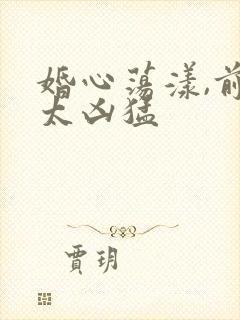 婚心荡漾,前
太凶猛
贾玥